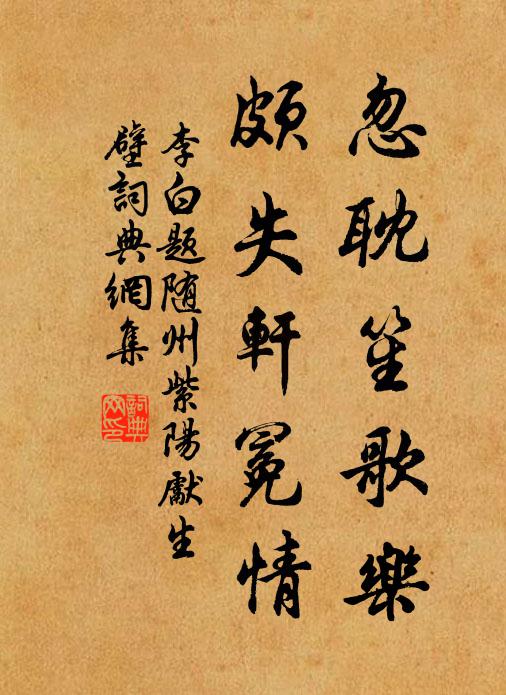 忽耽笙歌樂
頗失軒冕情
李白题随州紫陽獻生
壁詞典網集
詞典
网印